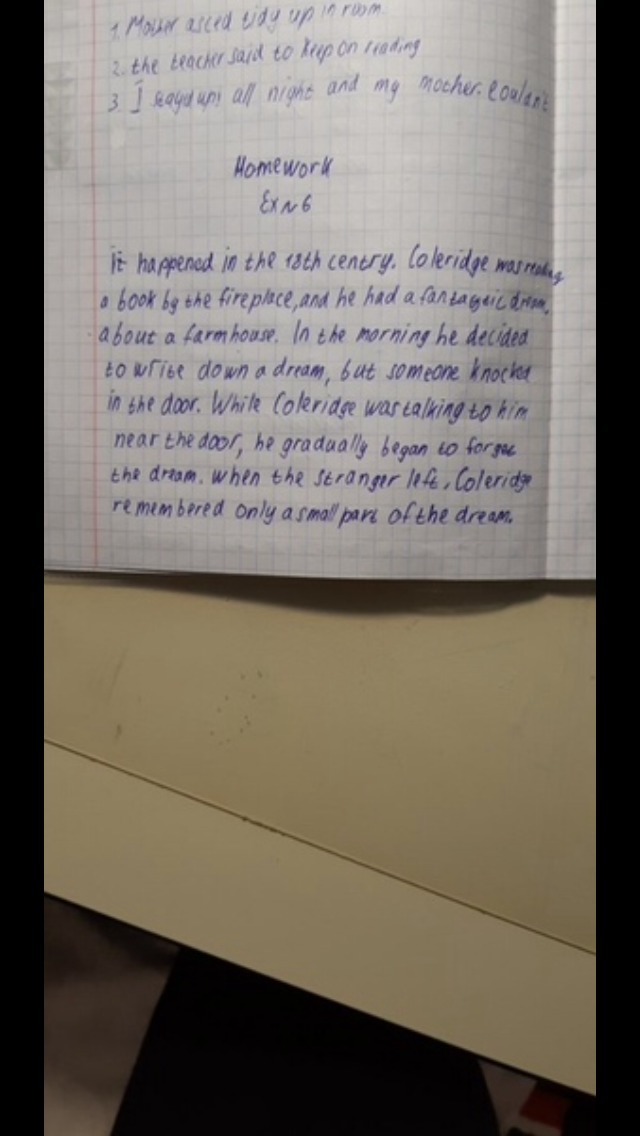 1. Mother asced tidy up in room.
2. the teacher said to keep on reading
3 I stayd up all night and my mother. couldn't
Homework
Ex № 6
it happened in the 18th centry. Coleridge was reading
a book by the fireplace, and he had a fantastic dream,
about a farmhouse. In the morning he decided
to write down a dream, but someone knocked
in the door. While Coleridge was talking to him
near the door, he gradually began to forget
the dream. when the stranger left, Coleridge
remembered only a small part of the dream.